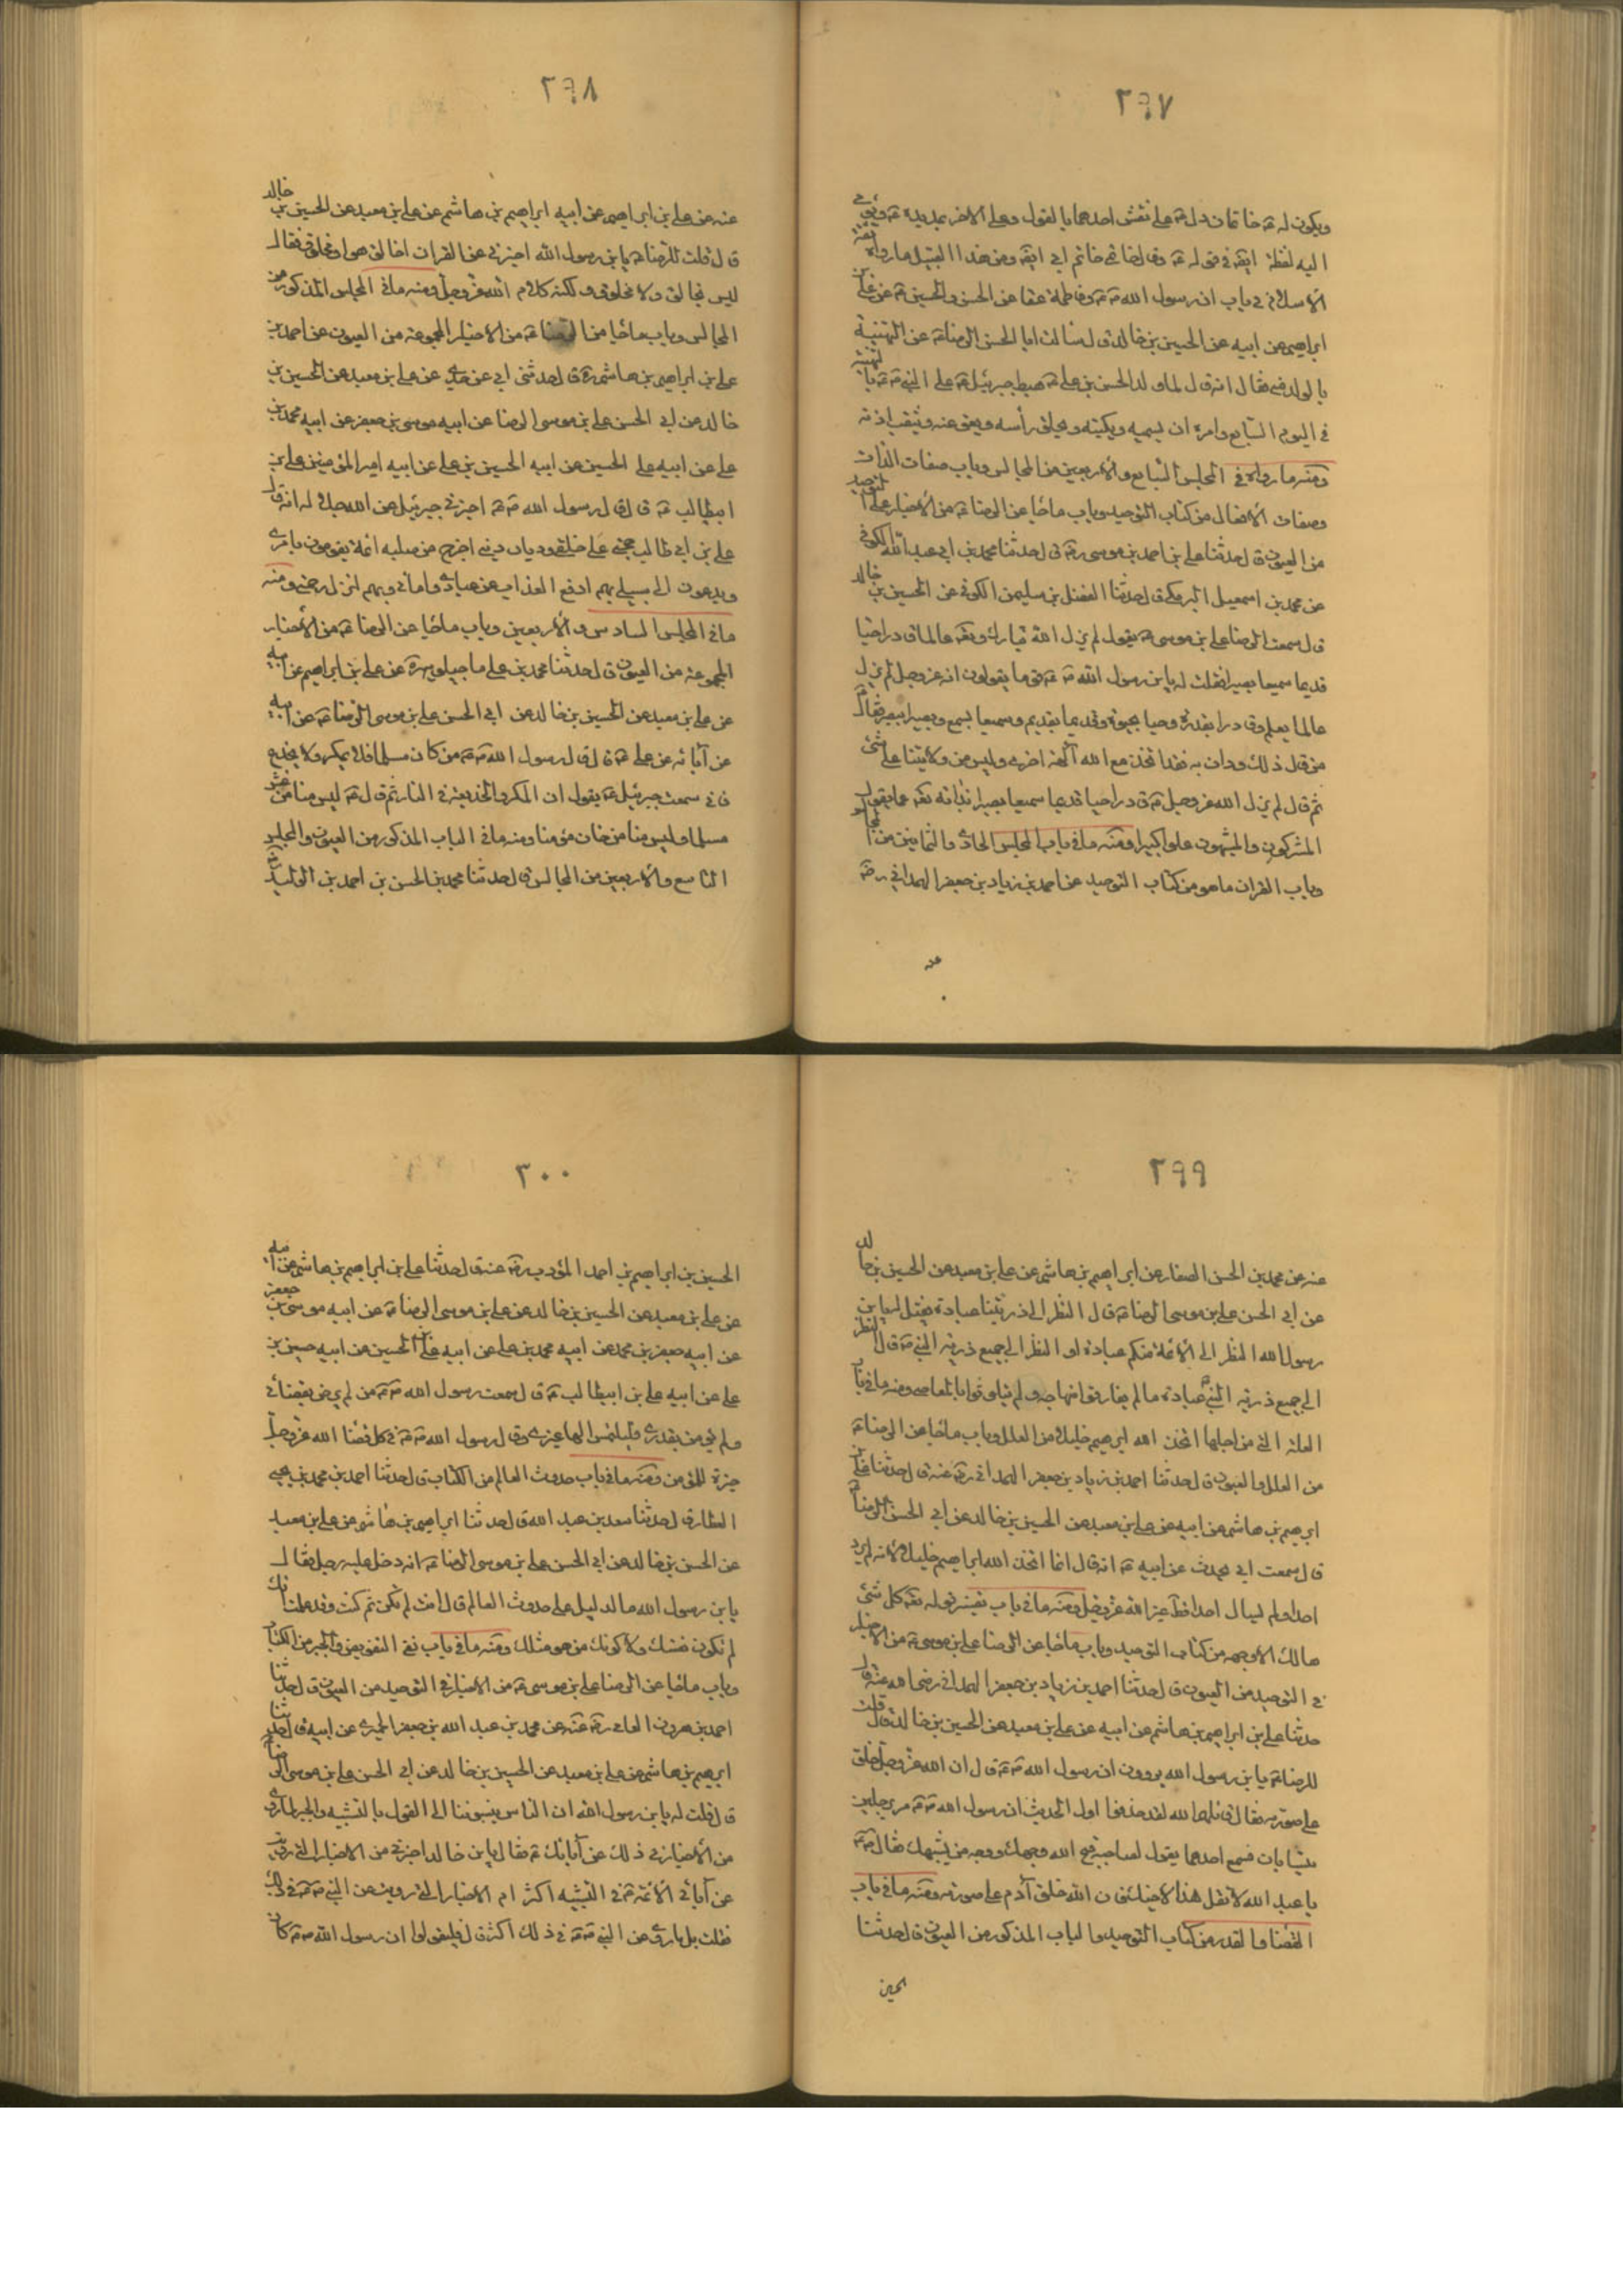 ٢٩٧
ويكون له ع خاتمان دل ع على نقش احدهما بالقول وعلى الاخر بمد يده ع ويؤمى
اليه لفظة ايضا في قوله ع وقال خاتمي خاتم ابي ايضا ومن هذا القبيل ما رواه ثقة
الاسلام في باب ان رسول الله ص وفاطمة عقا عن الحسن والحسين ع عن على بن
ابراهيم عن ابيه عن الحسين بن خالد قال سالت ابا الحسن الرضا ع عن التهنية
بالولد متى فقال انه قال لما ولد الحسن بن على ع هبط جبرئيل ع على النبي ص بالتهنية
في اليوم السابع وامره ان يسميه ويكنيه ويحلق رأسه ويعق عنه ويثقب اذنه
ومنه ما رواه في المجلس السابع والاربعين من المجالس وباب صفات الذات
وصفات الافعال من كتاب التوحيد وباب ما جاء عن الرضا ع من الاخبار في التوحيد
من العيون قال حدثنا على بن احمد بن موسى رض قال حدثنا محمد بن ابي عبد الله الكوفي
عن محمد بن اسمعيل البرمكي قال حدثنا الفضل بن سليمن الكوفي عن الحسين بن خالد
قال سمعت الرضا على بن موسى ع يقول لم يزل الله تبارك وتعالى عالما قادرا حيا
قديما سميعا بصيرا فقلت له يا بن رسول الله ص ان قوما يقولون انه عز وجل لم يزل
عالما بعلم وقادرا بقدرة وحيا بحيوة وقديما بقدم وسميعا بسمع وبصيرا ببصر فقال ع
من قال ذلك ودان به فقد اتخذ مع الله آلهة اخرى وليس من ولايتنا على شئ
ثم قال لم يزل الله عز وجل ع قادرا حيا قديما سميعا بصيرا لذاته تعالى عما يقول
المشركون والمشبهون علوا كبيرا ومنه ما في باب المجلس الحادى والثمانين من المجالس
وباب القران ما هو من كتاب التوحيد عن احمد بن زياد بن جعفر الهمداني رض
عنه
٢٩٨
عنه عن على بن ابراهيم عن ابيه ابراهيم بن هاشم عن على بن معبد عن الحسين بن خالد
قال قلت للرضا ع يا بن رسول الله اخبرني عن القران اخالق هو او مخلوق فقال
ليس بخالق ولا مخلوق ولكنه كلام الله عز وجل ومنه ما في المجلس المذكور من
المجالس وباب ما جاء من الرضا ع من الاخبار المجموعة من العيون عن احمد بن
على بن ابراهيم بن هاشم ره قال حدثني ابي عن جدى عن على بن معبد عن الحسين بن
خالد عن ابي الحسن على بن موسى الرضا عن ابيه موسى بن جعفر عن ابيه محمد بن
على عن ابيه على الحسين عن ابيه الحسين بن على عن ابيه امير المؤمنين على بن
ابيطالب ع قال قال رسول الله ص اخبرني جبرئيل عن الله جل جلاله انه قال
على بن ابي طالب حجتي على خلقى وديان ديني اخرج من صلبه ائمة يقومون بامرى
ويدعون الى سبيلى بهم ادفع العذاب عن عبادى وامائى وبهم انزل رحمتى ومنه
ما في المجلس السادس والاربعين وباب ما جاء عن الرضا ع من الاخبار
المجموعة من العيون قال حدثنا محمد بن على ماجيلويه ره عن على بن ابراهيم عن ابيه
عن على بن معبد عن الحسين بن خالد عن ابي الحسن على بن موسى الرضا ع عن ابيه
عن آبائه عن على ع قال قال رسول الله ص من كان مسلما فلا يمكر ولا يخدع
فانى سمعت جبرئيل ع يقول ان المكر والخديعة في النار ثم قال ع ليس منا من غش
مسلما وليس منا من خان مؤمنا ومنه ما في الباب المذكور من العيون والمجلس
التاسع والاربعين من المجالس قال حدثنا محمد بن الحسن بن احمد بن الوليد رض
٢٩٩
عنه عن محمد بن الحسن الصفار عن ابراهيم بن هاشم عن على بن معبد عن الحسين بن خالد
عن ابي الحسن على بن موسى الرضا ع قال النظر الى ذريتنا عبادة فقيل له يا بن
رسول الله النظر الى الائمة منكم عبادة او النظر الى جميع ذرية النبي ص قال النظر
الى جميع ذرية النبي عبادة ما لم يفارقوا منهاجه ولم يتلوثوا بالمعاصى ومنه ما في باب
العلة التي من اجلها اتخذ الله ابراهيم خليلا من العلل وباب ما جاء عن الرضا ع
من العلل والعيون قال حدثنا احمد بن زياد بن جعفر الهمدانى رض عنه قال حدثنا على بن
ابرهيم بن هاشم عن ابيه عن على بن معبد عن الحسين بن خالد عن ابي الحسن الرضا ع
قال سمعت ابي يحدث عن ابيه ع انه قال انما اتخذ الله ابراهيم خليلا لانه لم يرد
احدا ولم يسال احدا قط غير الله عز وجل ومنه ما في باب تفسير قوله تعالى كل شئ
هالك الا وجهه من كتاب التوحيد وباب ما جاء عن الرضا على بن موسى ع من الاخبار
في التوحيد من العيون قال حدثنا احمد بن زياد بن جعفر الهمدانى رضى الله عنه قال
حدثنا على بن ابراهيم بن هاشم عن ابيه عن على بن معبد عن الحسين بن خالد قال قلت
للرضا ع يا بن رسول الله يروون ان رسول الله ص قال ان الله عز وجل خلق
على صورته فقال قاتلهم الله لقد حذفوا اول الحديث ان رسول الله ص مر برجلين
يتسابان فسمع احدهما يقول لصاحبه قبح الله وجهك ووجه من يشبهك فقال ص
يا عبد الله لا تقل هذا لاخيك فان الله خلق آدم على صورته ومنه ما في باب
القضا والقدر من كتاب التوحيد والباب المذكور من العيون قال حدثنا
الحسين
٣٠٠
الحسين بن ابراهيم بن احمد المؤدب رض عنه قال حدثنا على بن ابراهيم بن هاشم عن ابيه
عن على بن معبد عن الحسين بن خالد عن على بن موسى الرضا ع عن ابيه موسى بن جعفر
عن ابيه جعفر بن محمد عن ابيه محمد بن على عن ابيه على الحسين عن ابيه حسين بن
على عن ابيه على بن ابيطالب ع قال سمعت رسول الله ص من لم يرض بقضائى
ولم يؤمن بقدرى فليلتمس الها غيرى وقال رسول الله ص في كل قضا الله عز وجل
خيرة للمؤمن ومنه ما في باب حدوث العالم من الكتاب قال حدثنا احمد بن محمد بن يحيى
العطار قال حدثنا سعد بن عبد الله قال حدثنا ابراهيم بن هاشم عن على بن معبد
عن الحسن بن خالد عن ابي الحسن على بن موسى الرضا ع انه دخل عليه رجل فقال
يا بن رسول الله ما الدليل على حدوث العالم قال انت لم تكن ثم كنت وقد علمت انك
لم تكون نفسك ولا كونك من هو مثلك ومنه ما في باب نفى التفويض والجبر من الكتاب
وباب ما جاء عن الرضا على بن موسى ع من الاخبار في التوحيد من العيون قال حدثنا
احمد بن هرون الفامى رض عنه عن محمد بن عبد الله بن جعفر الحميرى عن ابيه قال حدثنا
ابرهيم بن هاشم عن على بن معبد عن الحسين بن خالد عن ابي الحسن على بن موسى الرضا
قال قلت له يا بن رسول الله ان الناس ينسبوننا الى القول بالتشبيه والجبر لما روى
من الاخبار في ذلك عن آبائك ع فقال يا بن خالد اخبرني من الاخبار التي رويت
عن آبائى الائمة ع في التشبيه اكثر ام الاخبار التي رويت عن النبي ص في ذلك
فقلت بل ما روى عن النبي ص في ذلك اكثر قال فليقولوا ان رسول الله ص كان